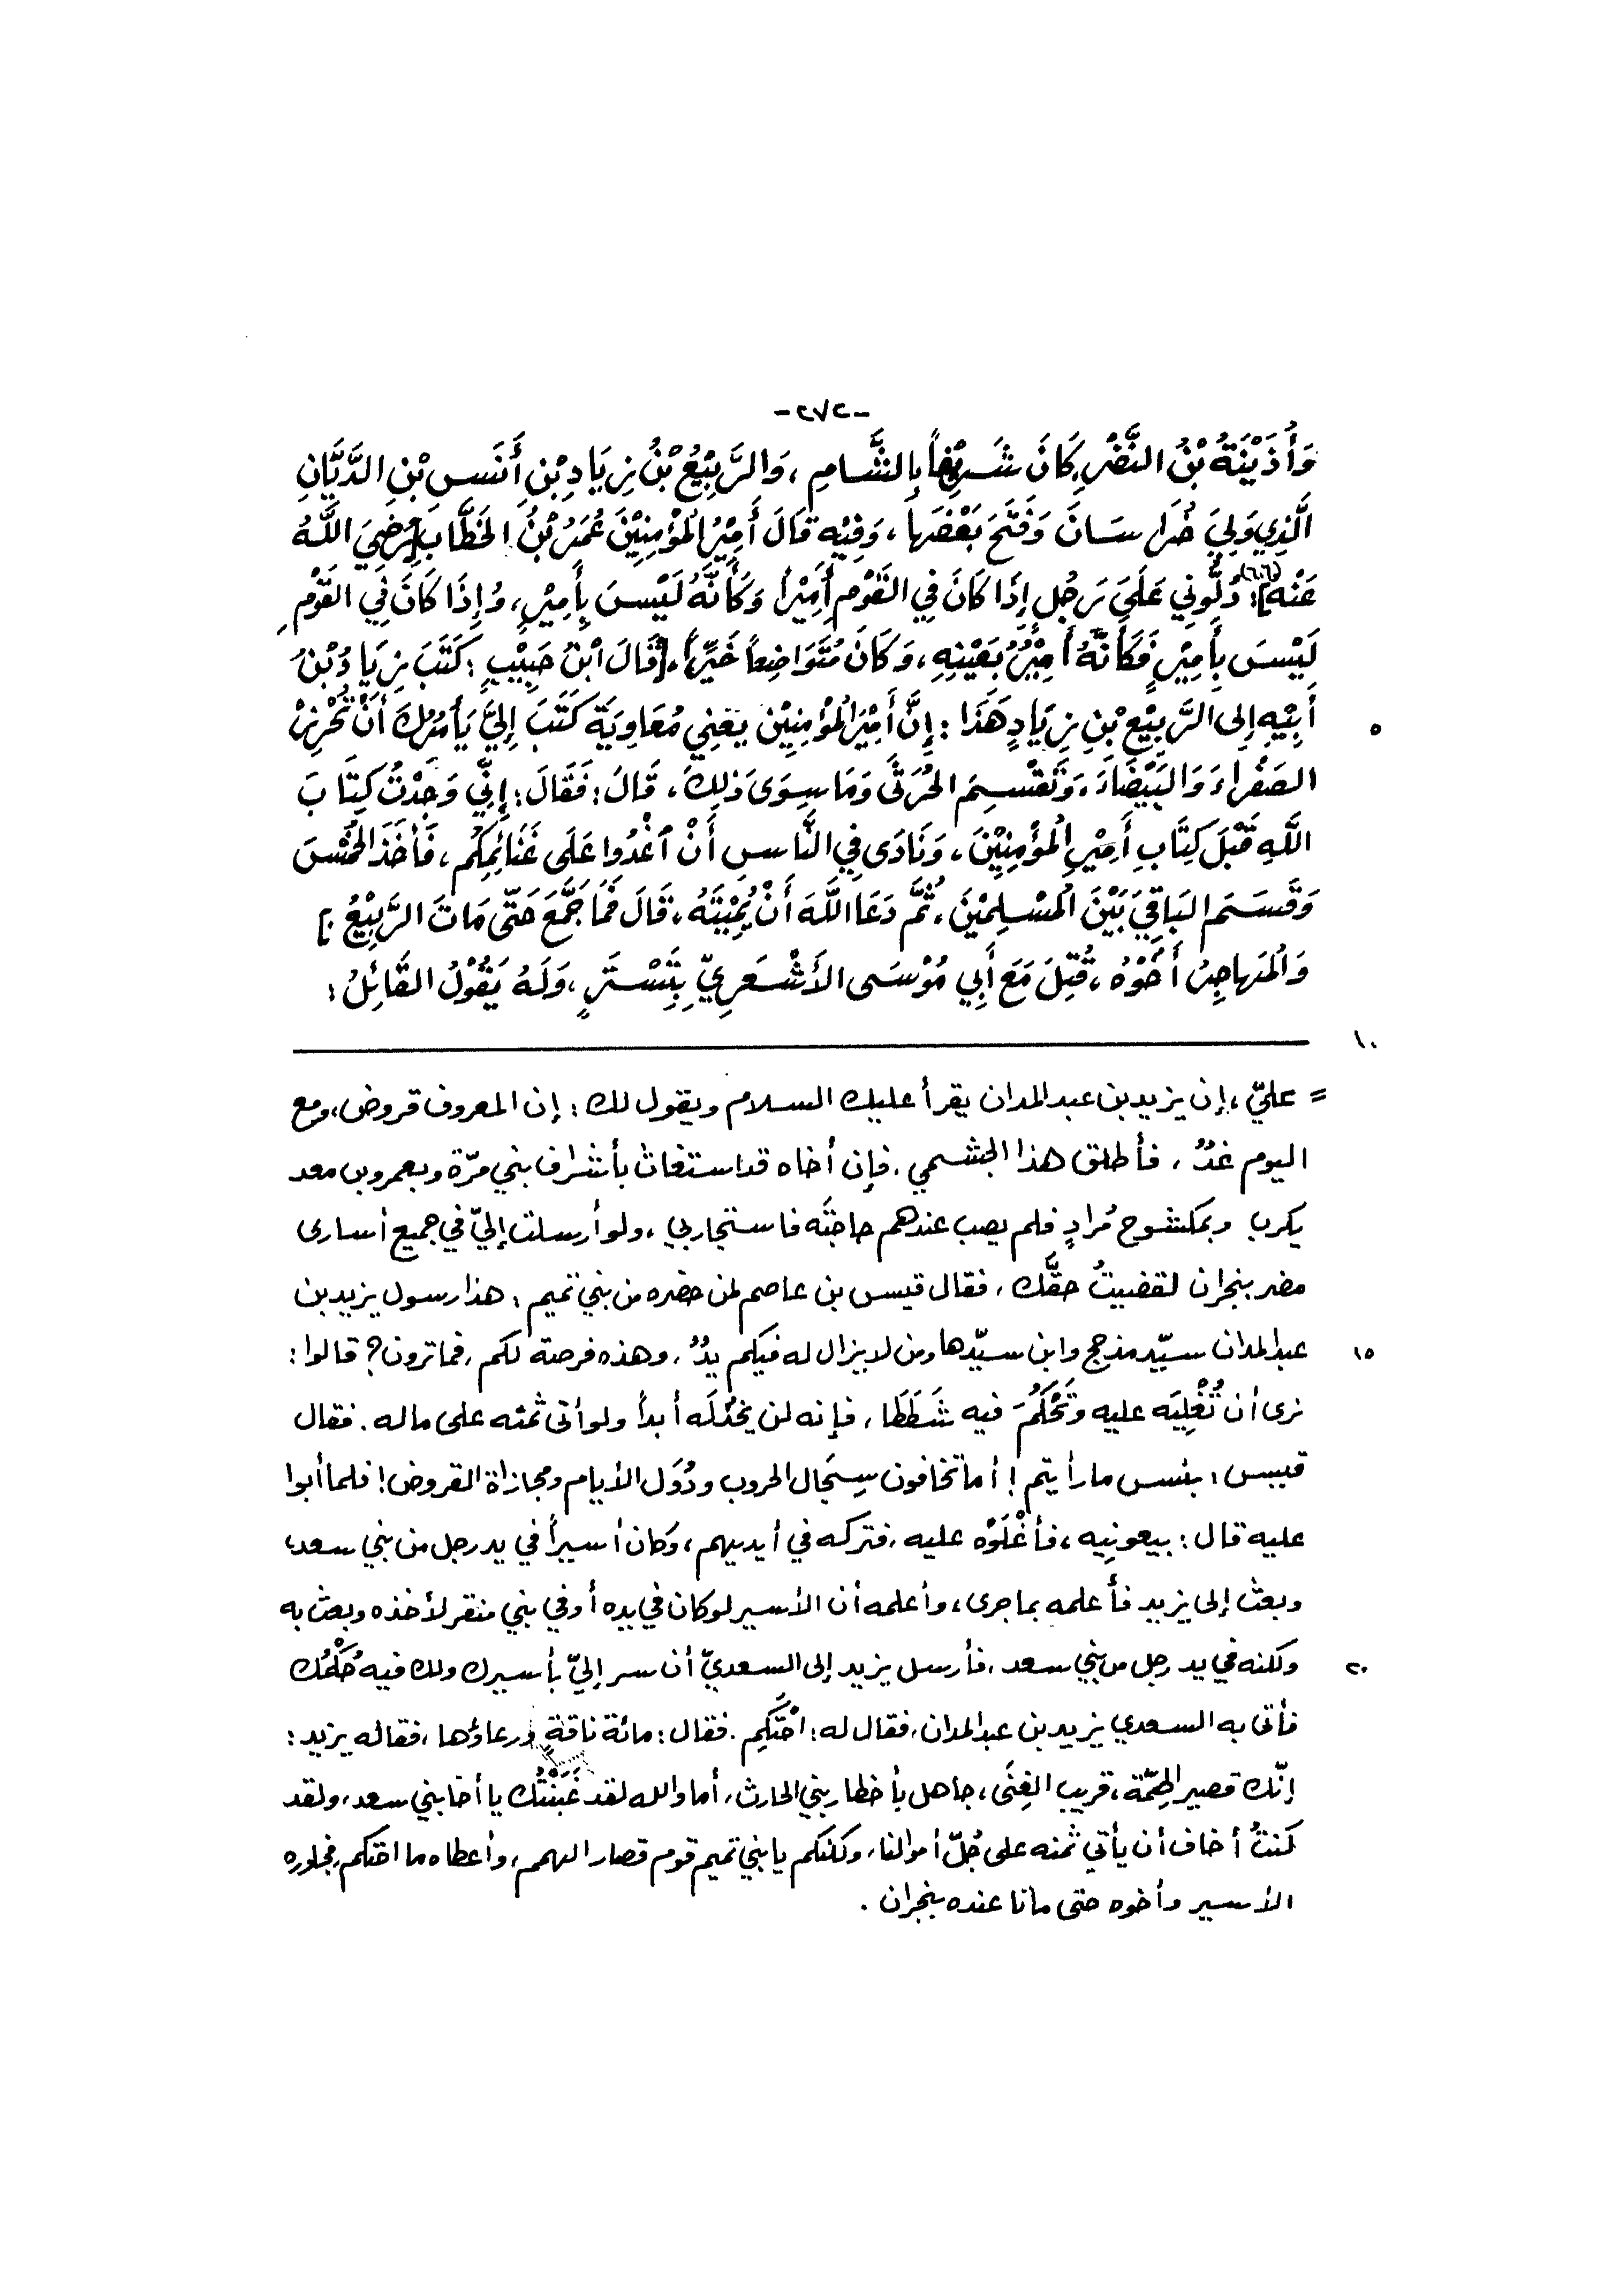 -٢٧٢-
وَأُذَيْنَةُ بْنُ النَّضْرِ، كَانَ شَرِيْفاً بِالشَّامِ، وَالرَّبِيْعُ بْنُ زِيَادِ بْنِ أَنَسِ بْنِ الدَّيَّانِ
الَّذِي وَلِيَ خُرَاسَانَ وَفَتَحَ بَعْضَهَا، وَفِيْهِ قَالَ أَمِيْرُ المُؤْمِنِيْنَ عُمَرُ بْنُ الخَطَّابِ [رَضِيَ اللَّهُ
عَنْهُ]: (٦٠٦) دُلُّونِي عَلَى رَجُلٍ إِذَا كَانَ فِي القَوْمِ أَمِيْراً وَكَأَنَّهُ لَيْسَ بِأَمِيْرٍ، وَإِذَا كَانَ فِي القَوْمِ
لَيْسَ بِأَمِيْرٍ فَكَأَنَّهُ أَمِيْرٌ بِعَيْنِهِ، وَكَانَ مُتَوَاضِعاً خَيِّراً، [قَالَ ابْنُ حَبِيْبٍ: كَتَبَ زِيَادُ بْنُ
٥
أَبِيْهِ إِلى الرَّبِيْعِ بْنِ زِيَادٍ هَذَا: إِنَّ أَمِيْرَ المُؤْمِنِيْنَ يَعْنِي مُعَاوِيَةَ كَتَبَ إِلَيَّ يَأْمُرُكَ أَنْ تُحْرِزَ
الصَفْرَاءَ وَالبَيْضَاءَ، وَتَقْسِمَ الخُرْثَى وَمَا سِوَى ذَلِكَ، قَالَ: فَقَالَ: إِنِّي وَجَدْتُ كِتَابَ
اللَّهِ قَبْلَ كِتَابِ أَمِيْرِ المُؤْمِنِيْنَ، وَنَادَى فِي النَّاسِ أَنْ اغْدُوا عَلَى غَنَائِمِكُم، فَأَخَذَ الخُمْسَ
وَقَسَمَ البَاقِيَ بَيْنَ المُسْلِمِيْنَ، ثُمَّ دَعَا اللَّهَ أَنْ يُمِيْتَهُ، قَالَ فَمَا جَمَّعَ حَتَّى مَاتَ الرَّبِيْعُ.]
وَالمُهَاجِرُ أَخُوْهُ، قُتِلَ مَعَ أَبِي مُوْسَى الأَشْعَرِيِّ بِتُسْتَرٍ، وَلَهُ يَقُوْلُ القَائِلُ:
١٠
= عليّ، إن يزيد بن عبد المدان يقرأ عليك السلام ويقول لك: إن المعروف قروض، ومع
اليوم غدٌ، فأطلق هذا الجشمي، فإن أخاه قد استغاث بأشراف بني مرّة وبعمرو بن معد
يكرب وبمكشوح مُرادٍ فلم يصب عندهم حاجتَه فاستجار بي، ولو أرسلت إليّ في جميع أسارى
مضر بنجران لقضيتُ حقَّك، فقال قيس بن عاصم لمن حضره من بني تميم: هذا رسول يزيد بن
١٥
عبد المدان سيّد مذحج وابن سيّدها ومن لا يزال له فيكم يدٌ، وهذه فرصة لكم، فما ترون؟ قالوا:
نرى أن نُغْلِيَه عليه ونَحْكُمَ فيه شَطَطَا، فإنه لن يخذُلَه أبداً ولو أتى ثمنُه على ماله. فقال
قيس: بئس ما رأيتم! أما تخافون سِجَال الحروب ودُوَل الأيام ومجازاة القروض! فلما أبوا
عليه قال: بيعونِيه، فأغْلَوْه عليه، فتركه في أيديهم، وكان أسيراً في يد رجل من بني سعد،
وبعث إلى يزيد فأعلمه بما جرى، وأعلمه أن الأسير لو كان في يده أو في بني منقر لأخذه وبعث به
ولكنه في يد رجل من بني سعد، فأرسل يزيد إلى السعديّ أن سر إليّ بأسيرك ولك فيه حُكْمُك
٢٠
فأتى به السعدي يزيد بن عبد المدان، فقال له: احْتَكِم. فقال: مائة ناقةٍ ورعاؤها، فقال له يزيد:
إنّك قصير الهِمّة، قريب الغِنَى، جاهل بأخطار بني الحارث، أما والله لقد غَبَنْتُك يا أخا بني سعد، ولقد
كنتُ أخاف أن يأتي ثمنه على جُلّ أموالنا، ولكنكم يا بني تميم قوم قصار الهمم، وأعطاه ما احتكم، فجاوره
الأسير وأخوه حتى ماتا عنده بنجران.